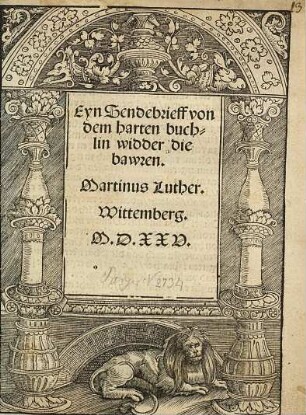 Eyn Sendebrieff von
dem harten buch-
lin widder die
bawren.
Martinus Luther.
Wittemberg.
M. D. XXV.
2734